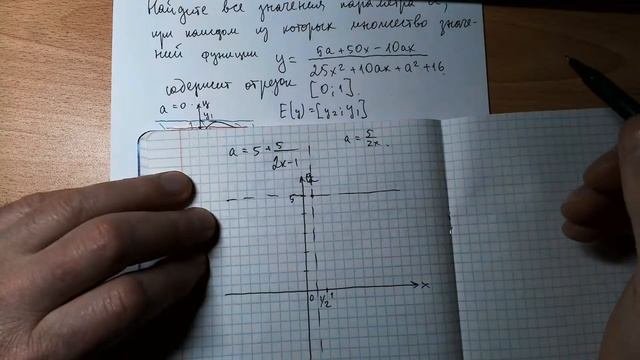 Найдите все значения параметра a,
при каждом из которых множество значе-
ний функции y = (5a + 50x - 10ax)/(25x² + 10ax + a² + 16)
содержит отрезок [0; 1].
a = 0. y E(y) = [y₂; y₁]
y₁
a = 5 + 5/(2x-1) a = 5/(2x).
5
0 1/2 1 x